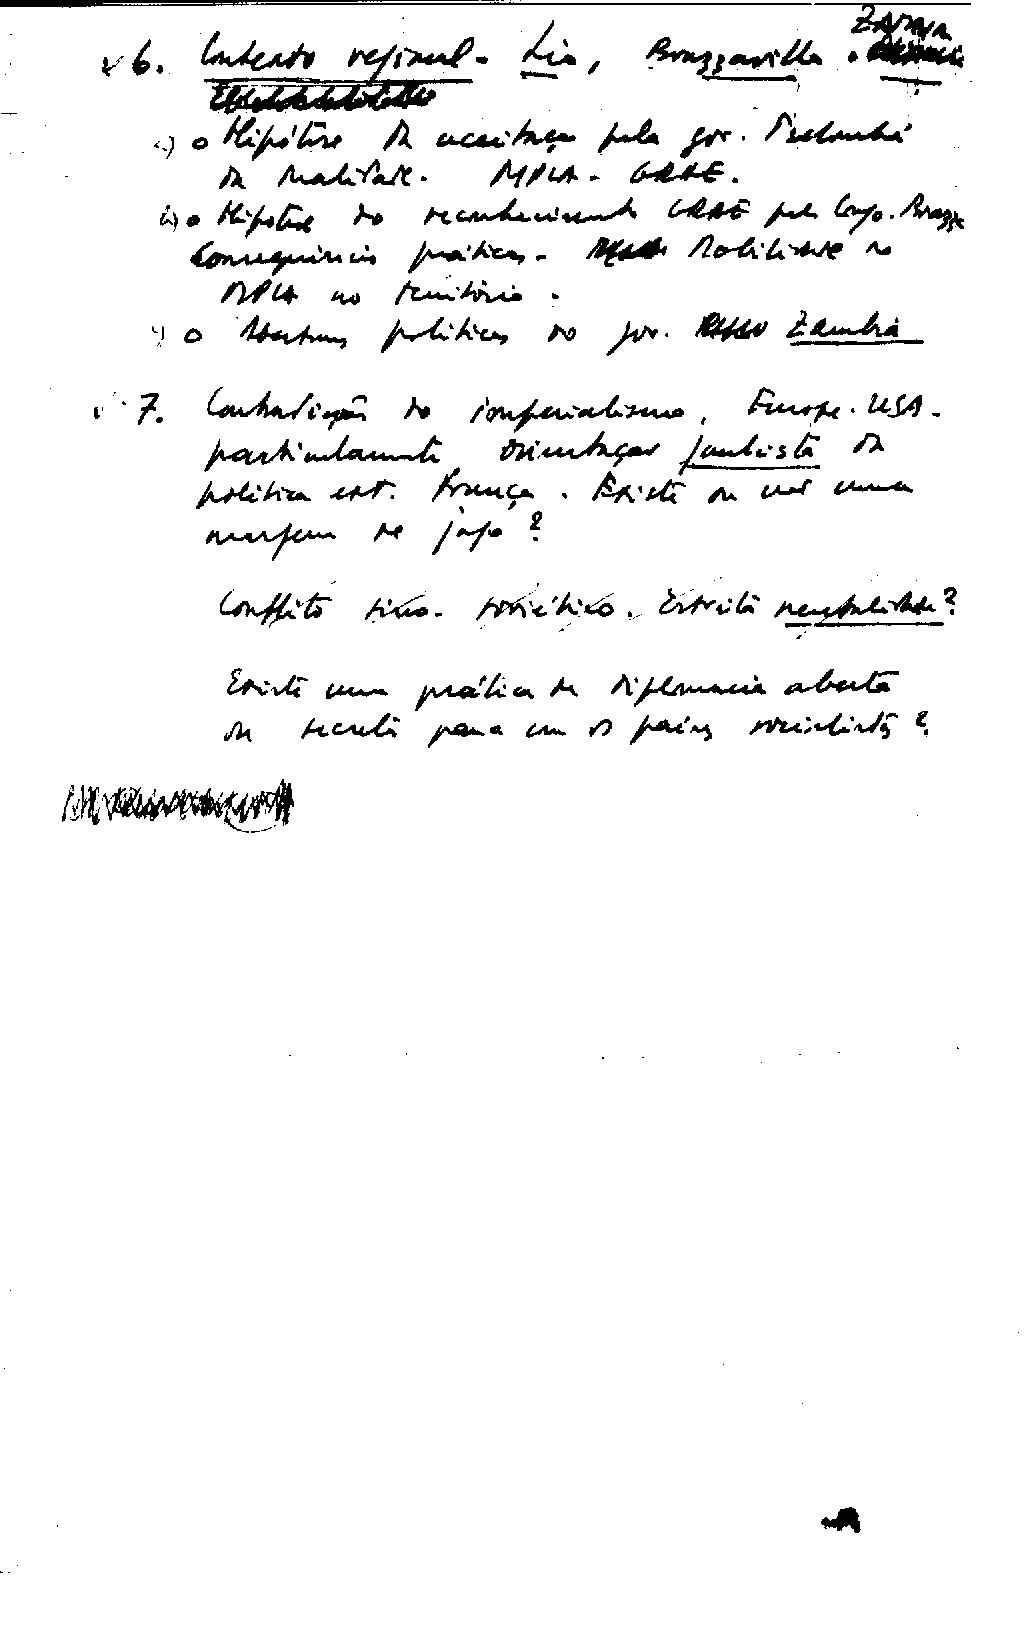 6. Contexto regional - Léo, Brazzaville. ZAMBIA
a) o Hipótese da aceitação pelo gov.
da dualidade. MPLA - GRAE.
b) o Hipótese do reconhecimento GRAE pelo Congo. Brazza
Consequências práticas. Mobilidade do
MPLA no território.
c) o Aberturas políticas do gov. Zambia
7. Contradições do imperialismo, Europa - USA -
particularmente orientação gaulista da
política ext. França. Existe ou não uma
margem de jogo?
Conflito sino-soviético. Estrita neutralidade?
Existe uma prática da diplomacia aberta
ou secreta para com os países socialistas?